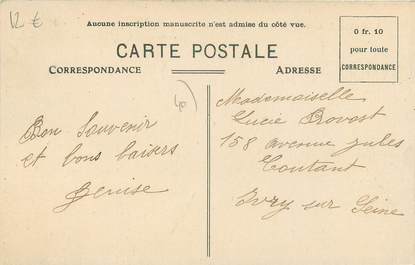 12 €
Aucune inscription manuscrite n'est admise du côté vue.
CARTE POSTALE
0 fr. 10
pour toute
CORRESPONDANCE
CORRESPONDANCE
ADRESSE
40
Bon souvenir
et bons baisers
Denise
Mademoiselle
Lucie Provost
158 avenue jules
Coutant
Ivry sur Seine